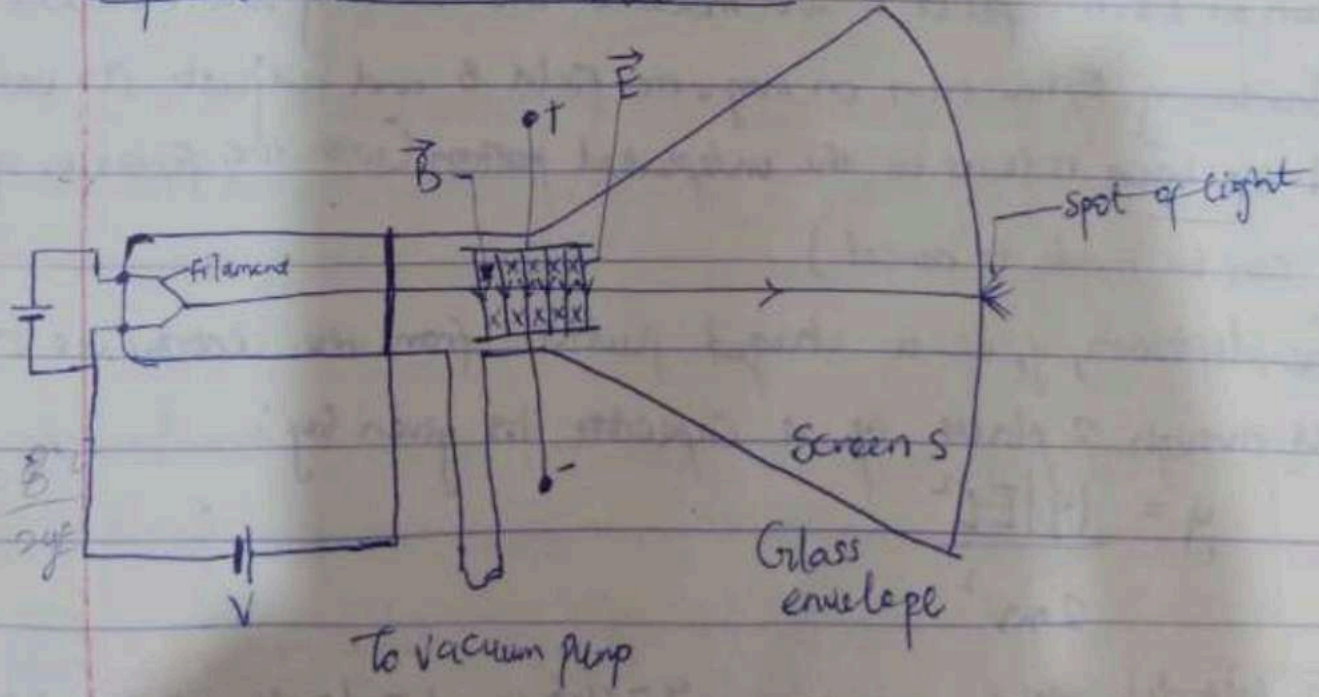 E
+
B
spot of light
filament
x x x x
x x x x x
Screen S
-
Glass
envelope
V
To vacuum pump